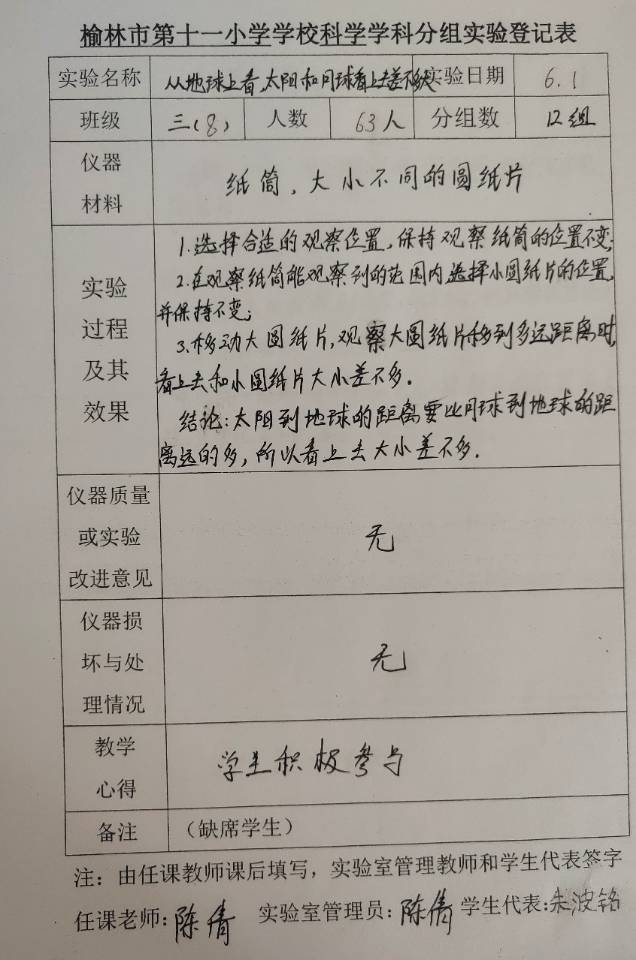 榆林市第十一小学学校科学学科分组实验登记表
实验名称 从地球上看,太阳和月球看上去差不多大 实验日期 6.1
班级 三(8) 人数 63人 分组数 12组
仪器
材料
纸筒,大小不同的圆纸片
实验
过程
及其
效果
1.选择合适的观察位置,保持观察纸筒的位置不变;
2.在观察纸筒能观察到的范围内选择小圆纸片的位置,
并保持不变;
3.移动大圆纸片,观察大圆纸片移到多远距离时,
看上去和小圆纸片大小差不多.
结论:太阳到地球的距离要比月球到地球的距
离远的多,所以看上去大小差不多.
仪器质量
或实验
改进意见
无
仪器损
坏与处
理情况
无
教学
心得
学生积极参与
备注 (缺席学生)
注:由任课教师课后填写,实验室管理教师和学生代表签字
任课老师:陈倩 实验室管理员:陈倩 学生代表:朱波铭